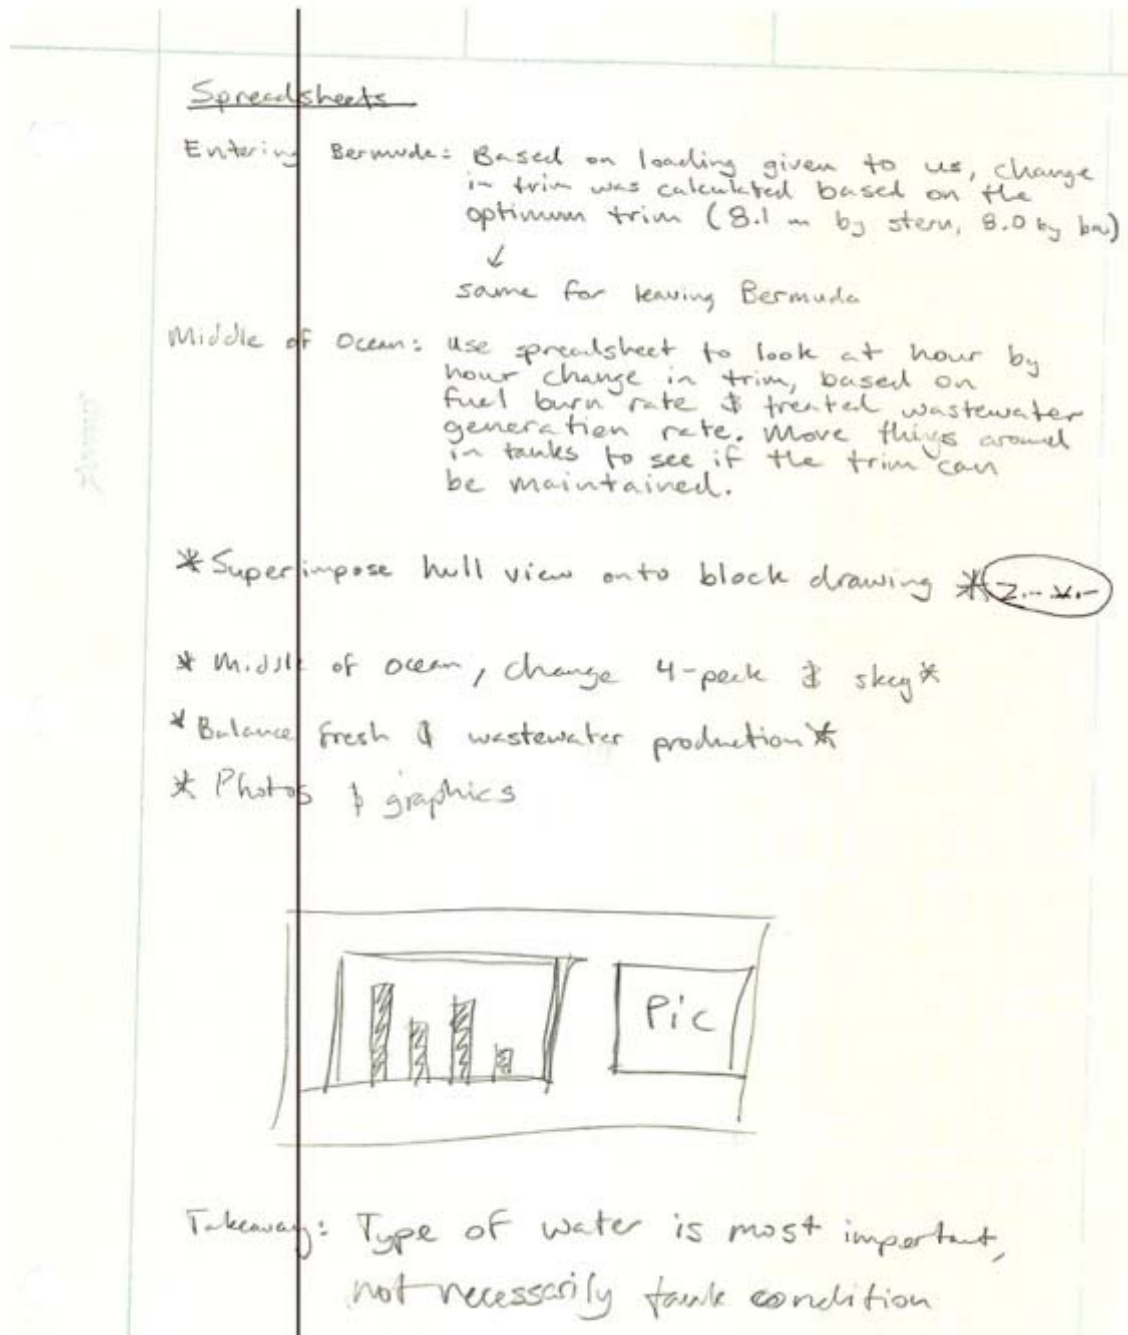 Spreadsheets
Entering Bermuda: Based on loading given to us, change
in trim was calculated based on the
optimum trim (8.1 m by stern, 8.0 by bow)
↓
same for leaving Bermuda
Middle of Ocean: Use spreadsheet to look at hour by
hour change in trim, based on
fuel burn rate & treated wastewater
generation rate. Move things around
in tanks to see if the trim can
be maintained.
*Superimpose hull view onto block drawing *
* Middle of ocean, change 4-peak & skeg*
*Balance fresh & wastewater production*
* Photos & graphics
Pic
Takeaway: Type of water is most important,
not necessarily tank condition